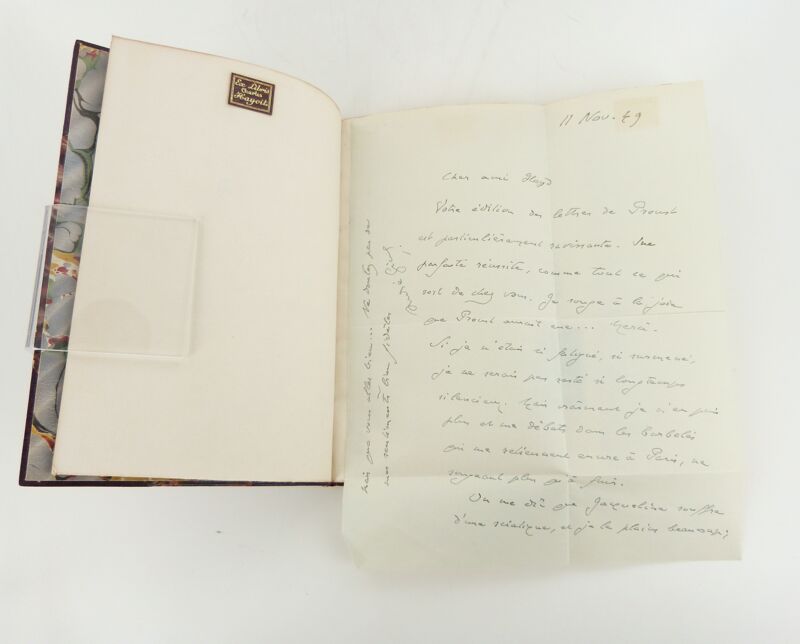 Ex Libris
Charles
Hayoit
11 Nov. 49
Cher ami Heyd
Votre édition des lettres de Proust
est particulièrement ravissante. Une
parfaite réussite, comme tout ce qui
sort de chez vous. Je songe à la joie
que Proust aurait eue... Merci.
Si je n'étais si fatigué, si surmené,
je ne serais pas resté si longtemps
silencieux. Mais vraiment je n'en puis
plus et me débats dans les barbelés
qui me retiennent encore à Paris, ne
songeant plus qu'à fuir.
On me dit que Jacqueline souffre
d'une sciatique, et je la plains beaucoup;
mais que vous allez bien... Ne doutez pas de
mes sentiments bien fidèles
André Gide